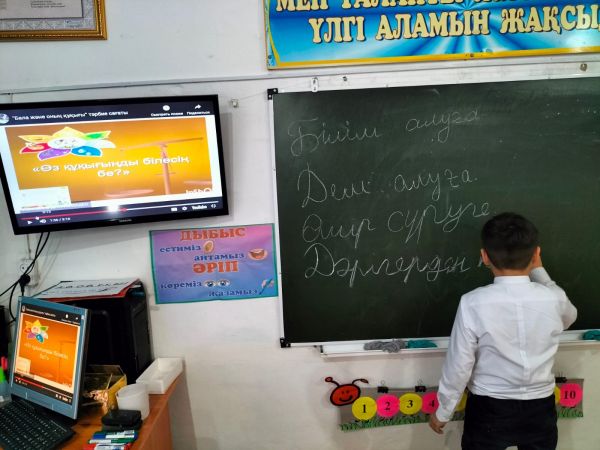 МЕН ТАЛАНТ
ҮЛГІ АЛАМЫН ЖАҚСЫ
"Бала және оның құқығы" тәрбие сағаты
Смотреть позже
Поделиться
«Өз құқығыңды білесің
бе?»
YouTube
ДЫБЫС
естиміз
айтамыз
ӘРІП
көреміз
жазамыз
Білім алуға
Дем алуға
Өмір сүруге
Дәрігерден
«Өз құқығыңды білесің
бе?»
1 2 3 4 10